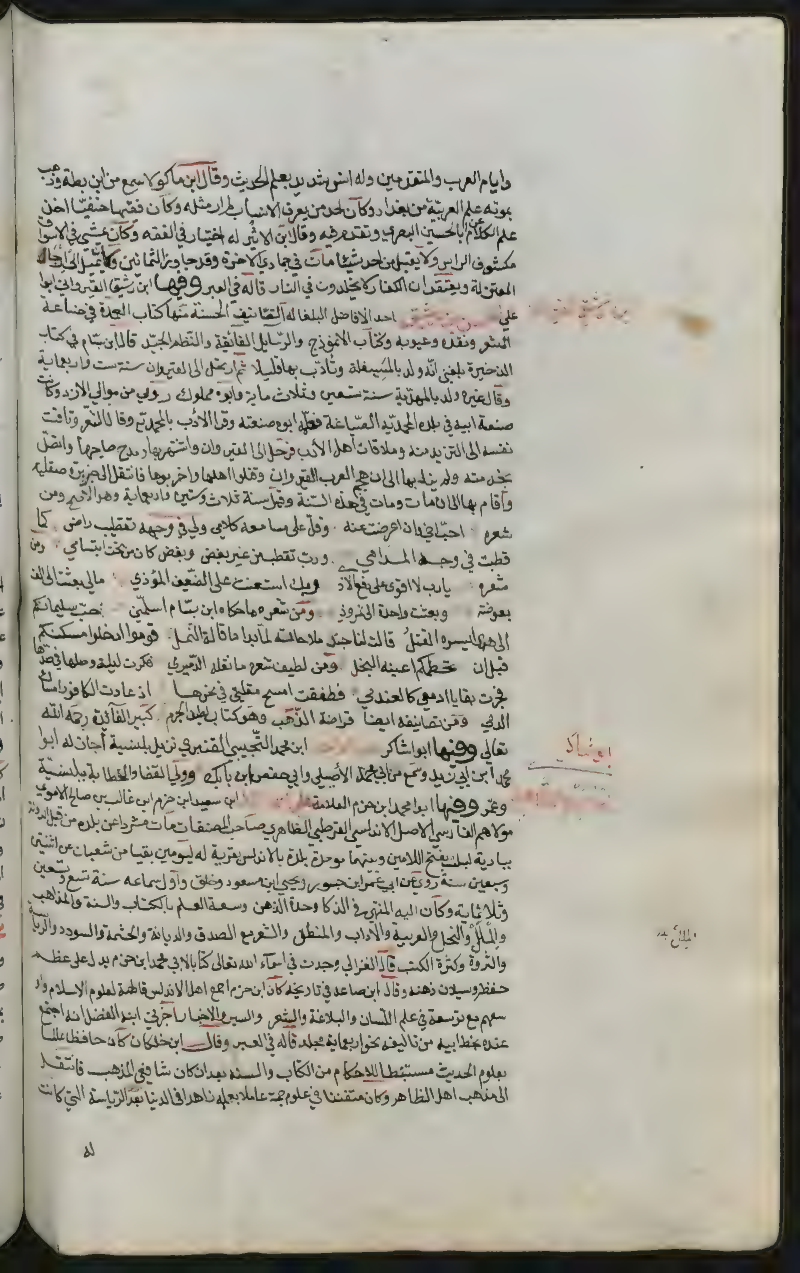 وايام العرب والمتقدمين وله انس شديد بعلم الحديث وقال ابن ماكولا سمع من ابن بطة وذهب
بموته علم العربية من بغداد وكان احد من يعرف الانساب لم ار مثله وكان فقيها حنفيا اخذ
علم الكلام عن ابي الحسين البصري وتقدم فيه وقال ابن الاثير له اختيار في الفقه وكان يمشي في الاسواق
مكشوف الراس ولا يقبل من احد شيئا مات في جمادي الاخرة وقد جاوز الثمانين وكان يميل الى ارجاء
المعتزلة ويعتقد ان الكفار لا يخلدون في النار قاله في العبر وفيها ابن رشيق القيرواني ابوا
علي احد الافاضل البلغا له التصانيف الحسنة منها كتاب العمدة في صناعة
الشعر ونقده وعيوبه وكتاب الانموذج والرسايل الفائقة والنظم الجيد قال ابن بسام في كتاب
الذخيرة بلغني انه ولد بالمسيلة وتادب بها قليلا ثم ارتحل الى القيروان سنة ست واربعماية
وقال غيره ولد بالمهدية سنة تسعين وثلاث ماية وابوه مملوك رومي من موالي الازد وكانت
صنعة ابيه في بلده المحمدية الصياغة فعلمه ابوه صنعته وقرا الادب بالمحمدية وقال الشعر وتاقت
نفسه الى التزيد منه وملاقات اهل الادب فرحل الى القيروان واشتهر بها ومدح صاحبها واتصل
بخدمته ولم يزل بها الى ان هجم العرب القيروان وقتلوا اهلها واخربوها فانتقل الى جزيرة صقلية
واقام بها الى ان مات ومات في هذه السنة وقيل سنة ثلاث وستين واربعماية وهو الاصح ومن
شعره احب اخي وان اعرضت عنه وقل على مسامعه كلامي ولي في وجهه تقطيب راض كما
قطبت في وجه المدام ورب تقطب من غير بغض وبغض كان من تحت ابتسامي ومن
شعره يارب لا اقوى على دفع الاذ وبك استعنت على الضعيف الموذي مالي بعثت الى الف
بعوضة وبعثت واحدة الى نمروذ ومن شعره ما حكاه ابن بسام اسلمني حب سليمانكم
الى هوى ايسره القتل قالت لنا جند ملاحاته لما بدا ما قالة النمل قوموا ادخلوا مسكنكم
قبل ان تحطمكم اعينه النجل ومن لطيف شعره ما نقله الدميري فكرت ليلة وصلها في صدها
فجرت بقايا ادمعي كالعندم فطفقت امسح مقلتي في نحرها اذ عادت الكافور امساك
الدم ومن تصانيفه ايضا قراضة الذهب وهو كتاب لطيف الجرم كبير الفائدة رحمه الله
تعالى وفيها ابوا شاكر ابن محمد التجيبي القنبري نزيل بلنسية اجاز له ابوا
محمد ابن ابي زيد وسمع من ابي محمد الاصيلي وابي حفص ابن نابل وولي القضا والخطابة ببلنسية
وعمر وفيها ابوا محمد ابن حزم العلامة ابن سعيد ابن حزم ابن غالب بن صالح الاموي
مولاهم الفارسي الاصل الاندلسي القرطبي الظاهري صاحب المصنفات مات مشردا عن بلده من قبل الدولة
ببادية لبلة بفتح اللامين وبينهما موحدة بلدة بالاندلس بقرية له ليومين بقيا من شعبان عن اثنتين
وسبعين سنة روي عن ابي عمر ابن جسور ويحيى ابن مسعود وخلق واول سماعه سنة تسع وتسعين
وثلاثماية وكان اليه المنتهى في الذكا وحدة الذهن وسعة العلم بالكتاب والسنة والمذاهب
والملل والنحل والعربية والاداب والمنطق والشعر مع الصدق والديانة والحشمة والسودد والرياسة
والثروة وكثرة الكتب قال الغزالي وجدت في اسماء الله تعالى كتابا لابي محمد ابن حزم يدل على عظم
حفظه وسيلان ذهنه وقال ابن صاعد في تاريخه كان ابن حزم اجمع اهل الاندلس قاطبة لعلوم الاسلام واو
سعهم مع توسعه في علم اللسان والبلاغة والشعر والسير والاخبار اخبرني ابنه الفضل انه اجتمع
عنده بخط ابيه من تاليفه نحو اربعماية مجلد قاله في العبر وقال ابن خلكان كان حافظا عالما
بعلوم الحديث مستنبطا للاحكام من الكتاب والسنة بعد ان كان شافعي المذهب فانتقل
الى مذهب اهل الظاهر وكان متفننا في علوم جمة عاملا بعلمه زاهدا في الدنيا بعد الرياسة التي كانت
له